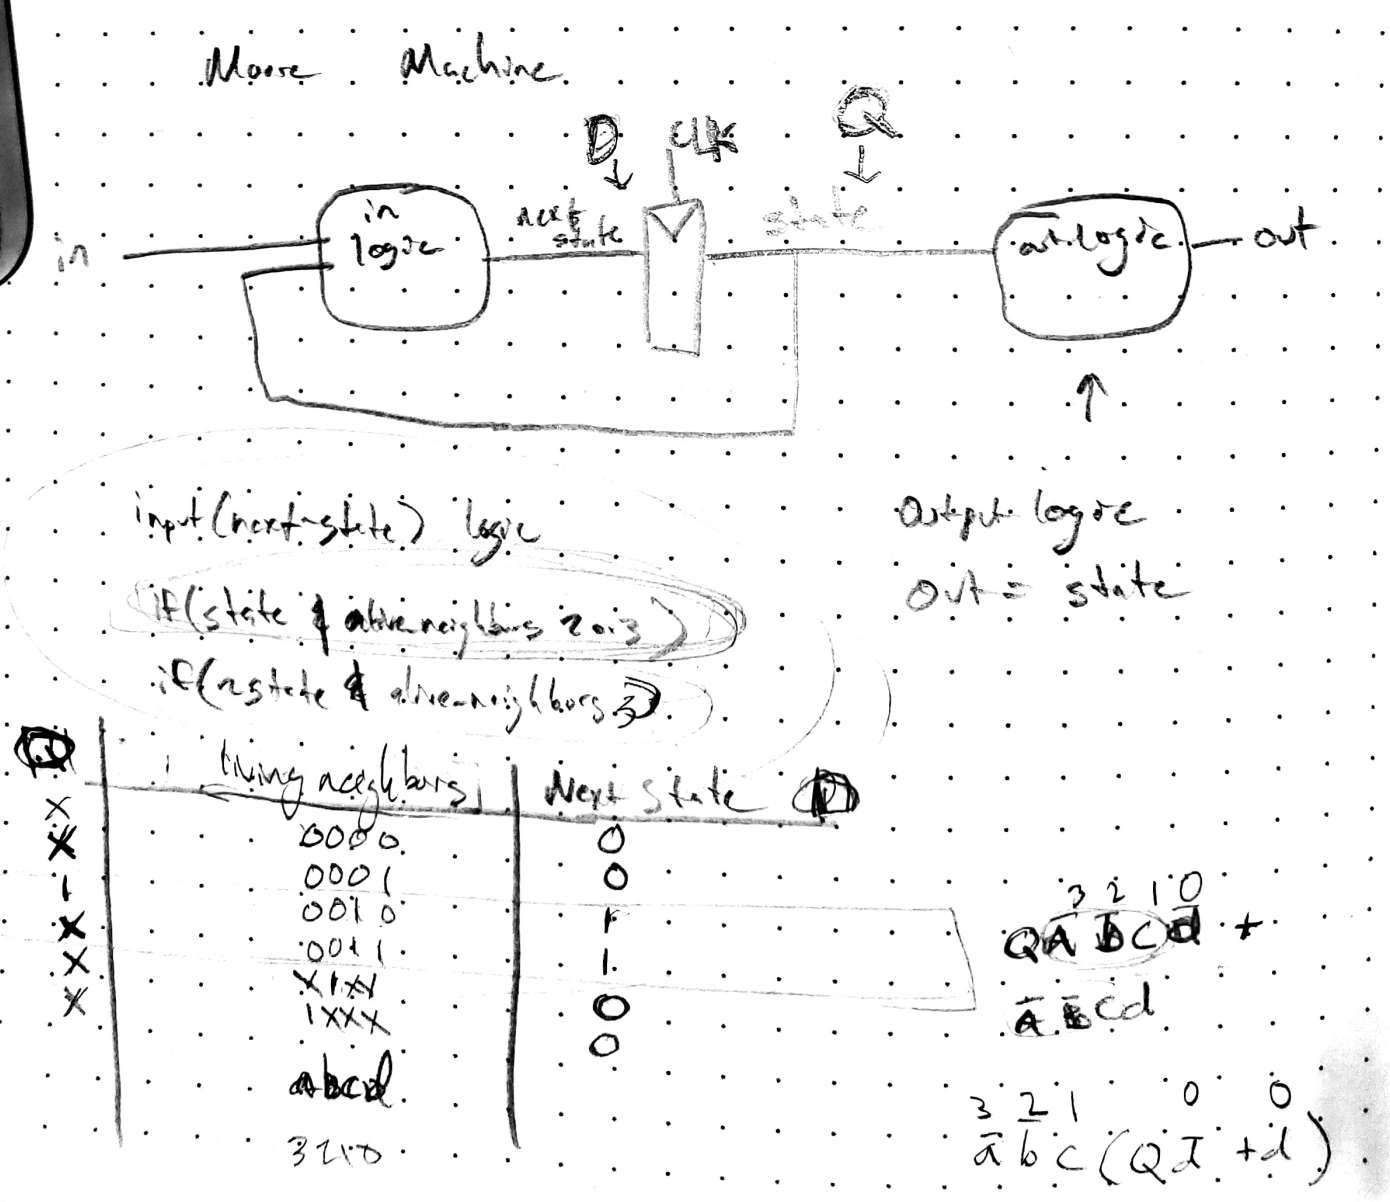 Moore Machine
D CLK Q
in
in logic
next state
state
out logic
out
input(next-state) logic
if(state & alive neighbors 2 or 3)
if(~state & alive-neighbors 3)
Output logic
Out = state
Q living neighbors Next State D
X 0000 0
X 0001 0
1 0010 1
X 0011 1
X X1XX 0
X 1XXX 0
abcd
3210
3 2 1 0
Q a̅ b̅ c d̅ +
a̅ b̅ c d
3 2 1 0 0
a̅ b̅ c (Q d̅ + d)